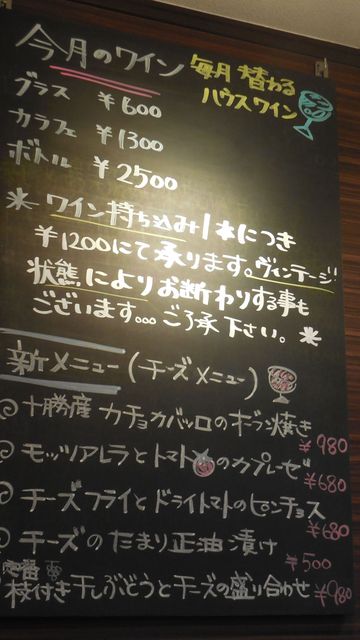 今月のワイン
毎月替わる
ハウスワイン
グラス ¥600
カラフェ ¥1300
ボトル ¥2500
＊ワイン持ち込み1本につき
¥1200にて承ります。ヴィンテージ
状態によりお断わりする事も
ございます…ご了承下さい。＊
新メニュー(チーズメニュー)
十勝産カチョカバッロのオーブン焼き
¥980
モッツアレラとトマトのカプレーゼ
¥680
チーズフライとドライトマトのピンチョス
¥680
チーズのたまり正油漬け
¥500
定番
枝付き干しぶどうとチーズの盛り合わせ ¥980